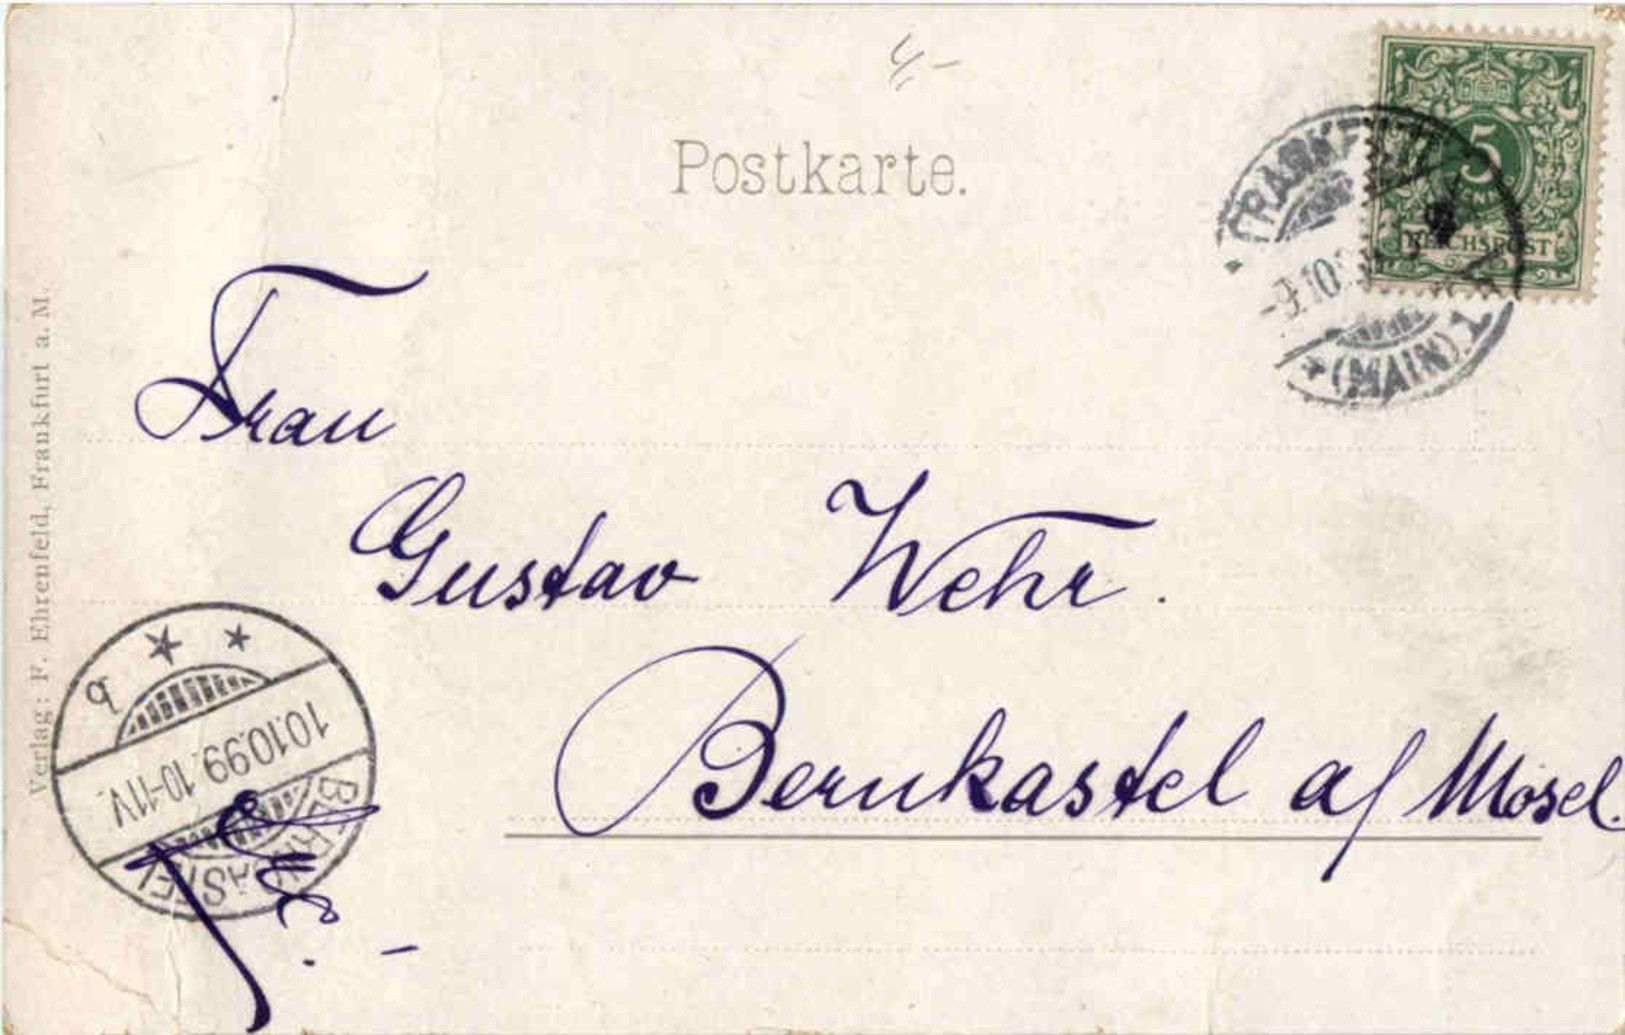 4-
Postkarte.
5
REICHSPOST
FRANKFURT
-9.10.
* (MAIN) 1
Frau
Gustav Wehr.
Bernkastel a/ Mosel.
Verlag: F. Ehrenfeld, Frankfurt a. M.
BERNCASTEL
10.10.99. 10-11V.
* *